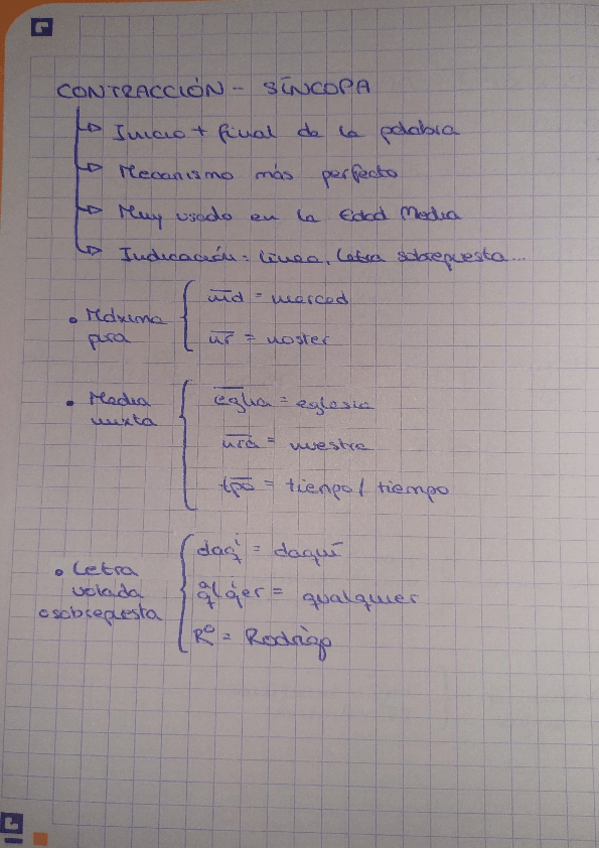 CONTRACCIÓN - SÍNCOPA
Inicio + final de la palabra
Mecanismo más perfecto
Muy usado en la Edad Media
Indicación: línea, letra sobrepuesta...
• Máxima pura
m̅d̅ = merced
n̅r̅ = noster
• Media mixta
e̅g̅l̅i̅a = eglesia
n̅r̅a̅ = nuestra
t̅p̅o̅ = tienpo / tiempo
• Letra volada o sobrepuesta
daqⁱ = daquí
qᵃl qⁱer = qualquier
Rº = Rodrigo